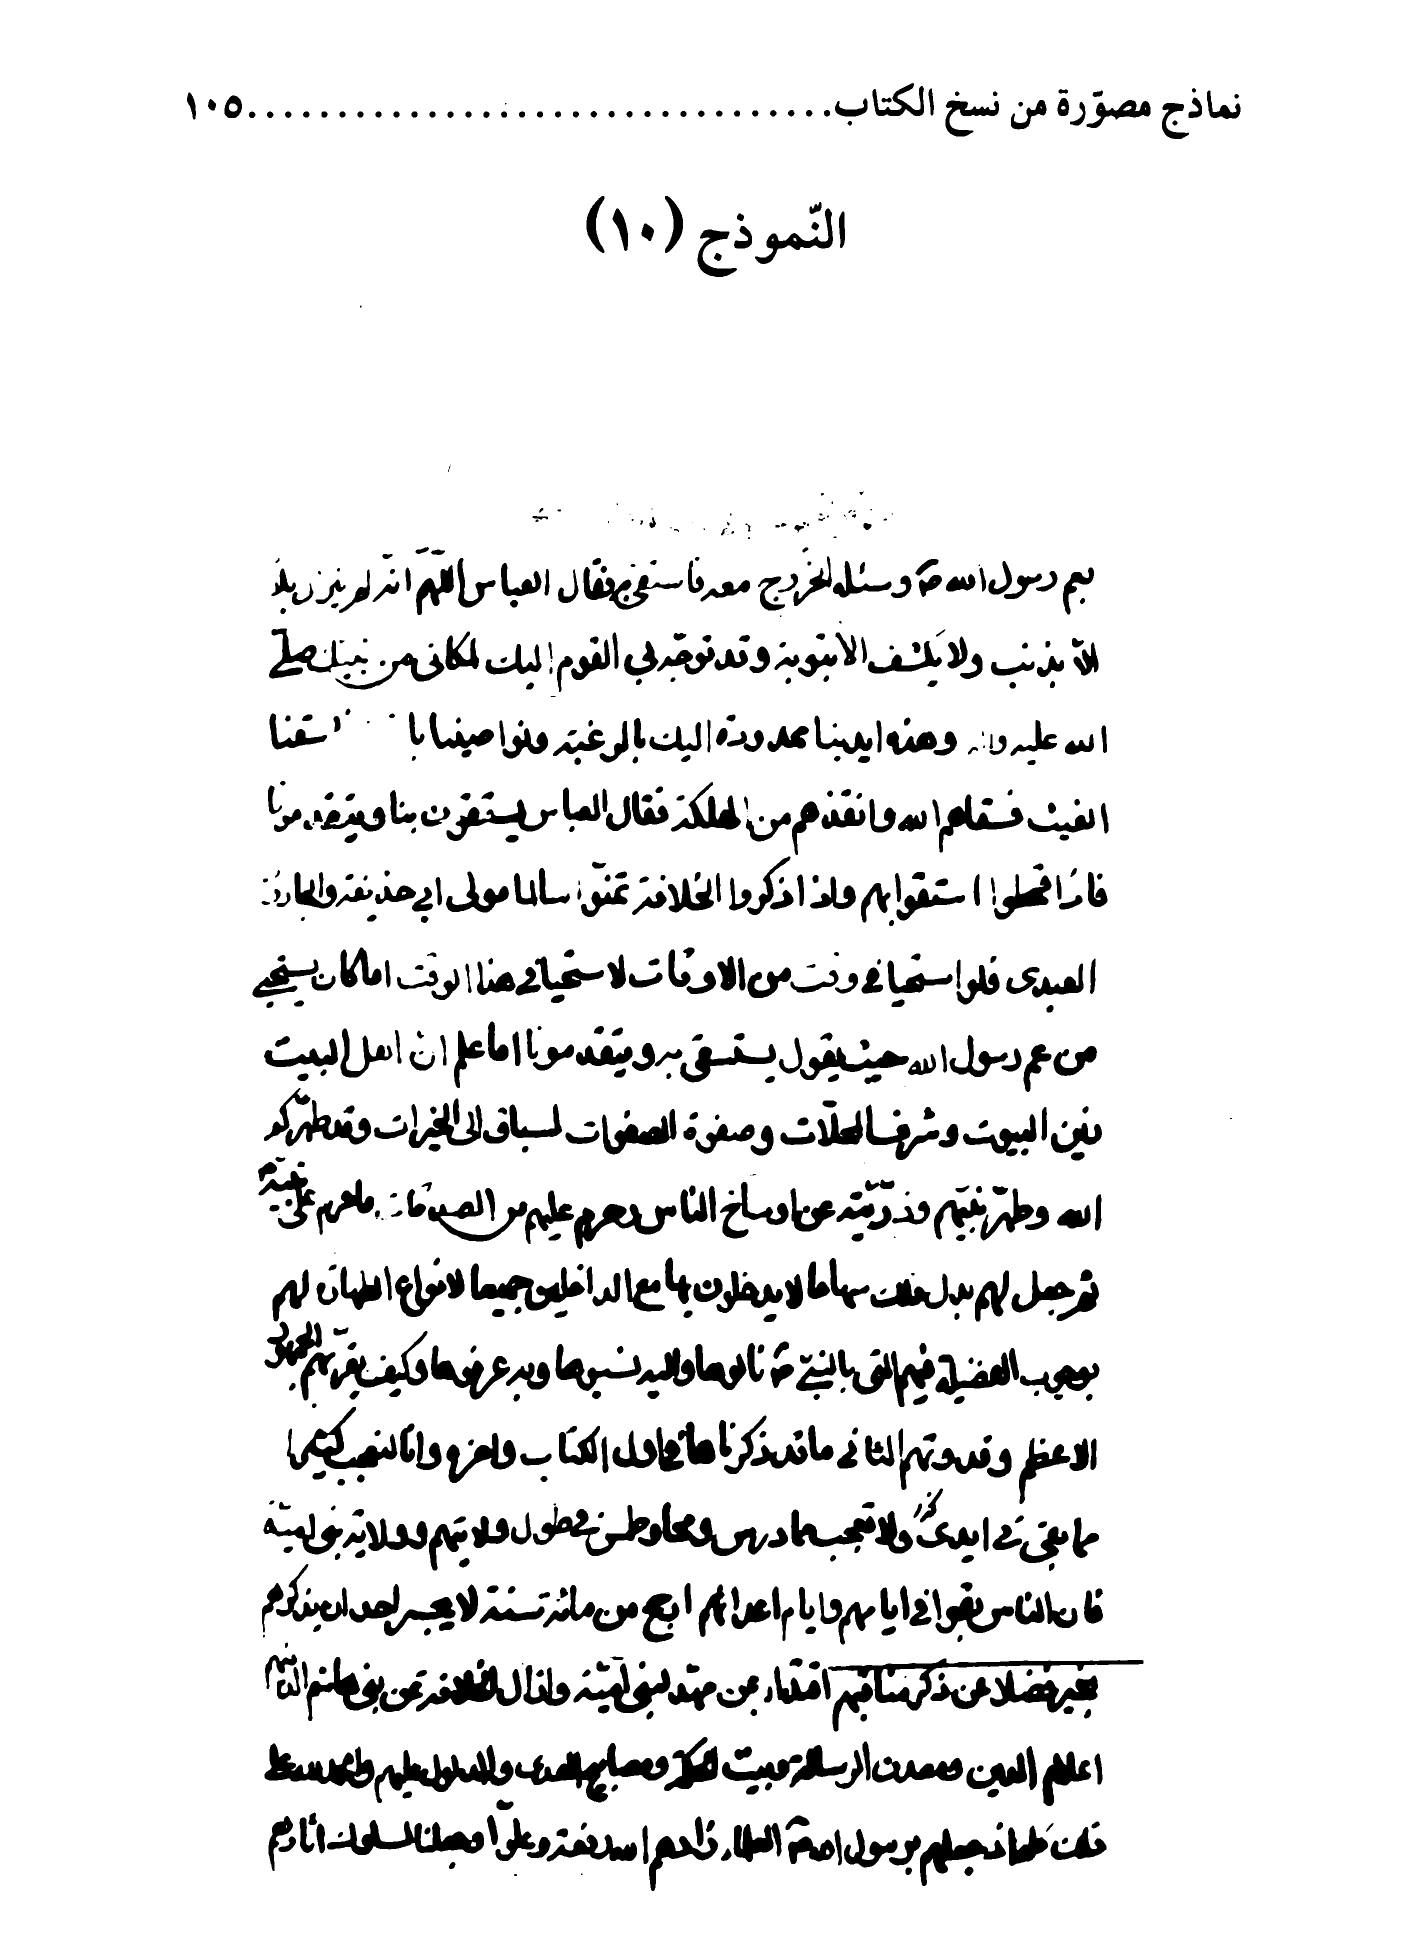 نماذج مصوّرة من نسخ الكتاب................................١٠٥
النّموذج (١٠)
بعم رسول الله ص وسئله الخروج معه فاستسقى به فقال العباس اللهمّ انّه لم ينزل بلاء
الّا بذنب ولا يكشف الا بتوبة وقد توجّه بي القوم اليك لمكاني من نبيك صلى
الله عليه واله وهذه ايدينا ممدودة اليك بالرغبة ونواصينا با اسقنا
الغيث فسقاهم الله وانقذهم من الهلكة فقال العباس يستقون بنا ويتقدمونا
فاذا قحطوا استقوا بهم واذا ذكروا الخلافة تمنّوا سالما مولى ابي حذيفة والجارود
العبدى فلو استحيا في وقت من الاوقات لاستحيا في هذا الوقت اما كان يستحيي
من عم رسول الله حيث يقول يستسقى به ويتقدمونا اما علم ان اهل البيت
زين البيوت وشرف المحلّات وصفوة الصفوات لسباق الى الخيرات وقد طهّركم
الله وطهّر نبيهم وذرّيّته عن اوساخ الناس وحرم عليهم من الصدقات ما حرم على نبيّه ص
ثم جعل لهم بدل ذلك سهاما لا يدخلون بها مع الداخلين جميعا لانواع الطهارة لهم
بوجوب الفضيلة فيهم التي بالنبيّ ص نالوها واليه نسبوها وبه عرفوها وكيف يقرّبهم
الاعظم وقدوتهم الثاني ما قد ذكرناها في اول الكتاب واخره وانا لنعجب كثيرا
مما بقى في ايدى ولا تعجب مما درس ومحا وطمس في طول ولايتهم وولاية بني اميّة
فان الناس بقوا في ايامهم وايام اعدائهم اربع من مائة سنة لا يجسر احد ان يذكرهم
بخير فضلا عن ذكر مناقبهم اقتداء بمن مهّد لبني اميّة وازال الخلافة عن بني هاشم الذينهم
اعلام الدين ومعدن الرسالة وبيت الحكمة ومصابيح الهدى
فلك جعلهم برسول الله ص العلماء زادهم الله رفعة وعلوّا وجعلنا لسلوك اثارهم